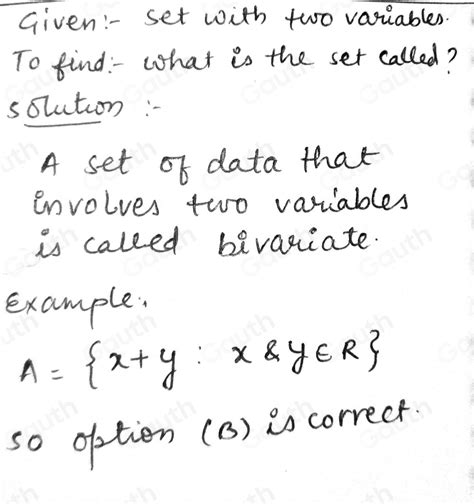 Given:- set with two variables.
To find:- what is the set called?
solution :-
A set of data that
involves two variables
is called bivariate.
Example:,
A = {x+y : x & y ∈ R}
so option (B) is correct.